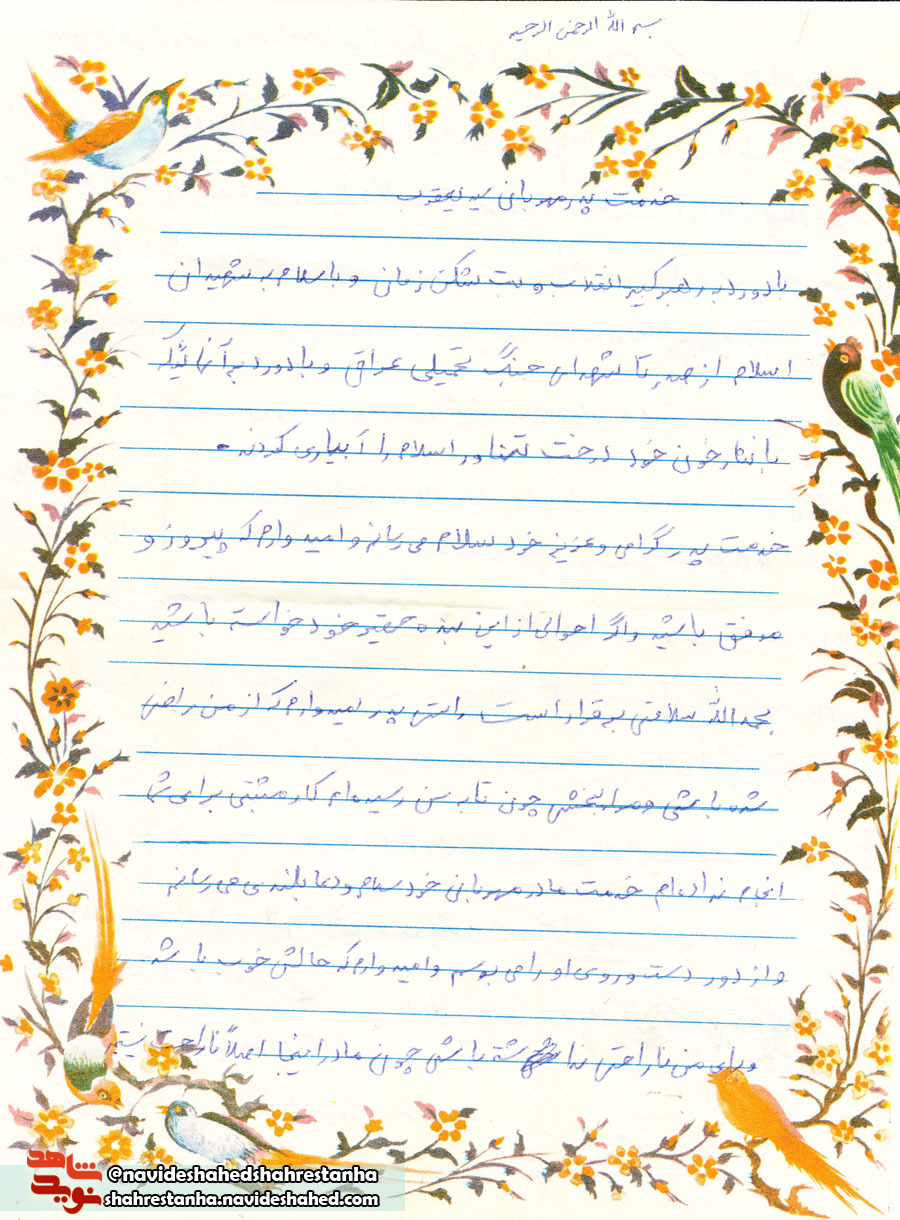 بسم الله الرحمن الرحیم
خدمت پدر مهربانی سید یعقوب
با درود بر رهبر کبیر انقلاب و بت شکن زمان و با سلام به شهیدان
اسلام از صدر تا شهدای جنگ تحمیلی عراق و با درود به آنهائیکه
با نثار خون خود درخت تنماور اسلام را آبیاری کردند.
خدمت پدر گرامی و عزیز خود سلام می رسانم و امید وارم که پیروز و
موفق باشید و اگر احوالی از این بنده حقیر خود خواسته باشید
بحمد الله سلامتی برقرار است راستی پدر امید وارم که از من راضی
شده باشی و مرا ببخشی چون تا به سن رسیده ام کار مثبتی برای شما
انجام نداده ام خدمت مادر مهربانی خود سلام و دعا بلندی می رسانم
و از دور دست و روی او را می بوسم و امید وارم که حالش خوب باشد
و برای من ناراحتی نداشته باشی چون ما در اینجا اصلاً ناراحت نیستم
@navideshahedshahrestanha
shahrestanha.navideshahed.com
نوید شاهد